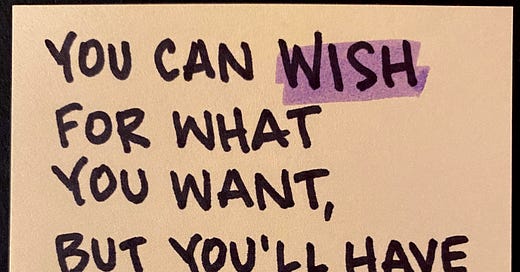 YOU CAN WISH
FOR WHAT
YOU WANT,
BUT YOU'LL HAVE